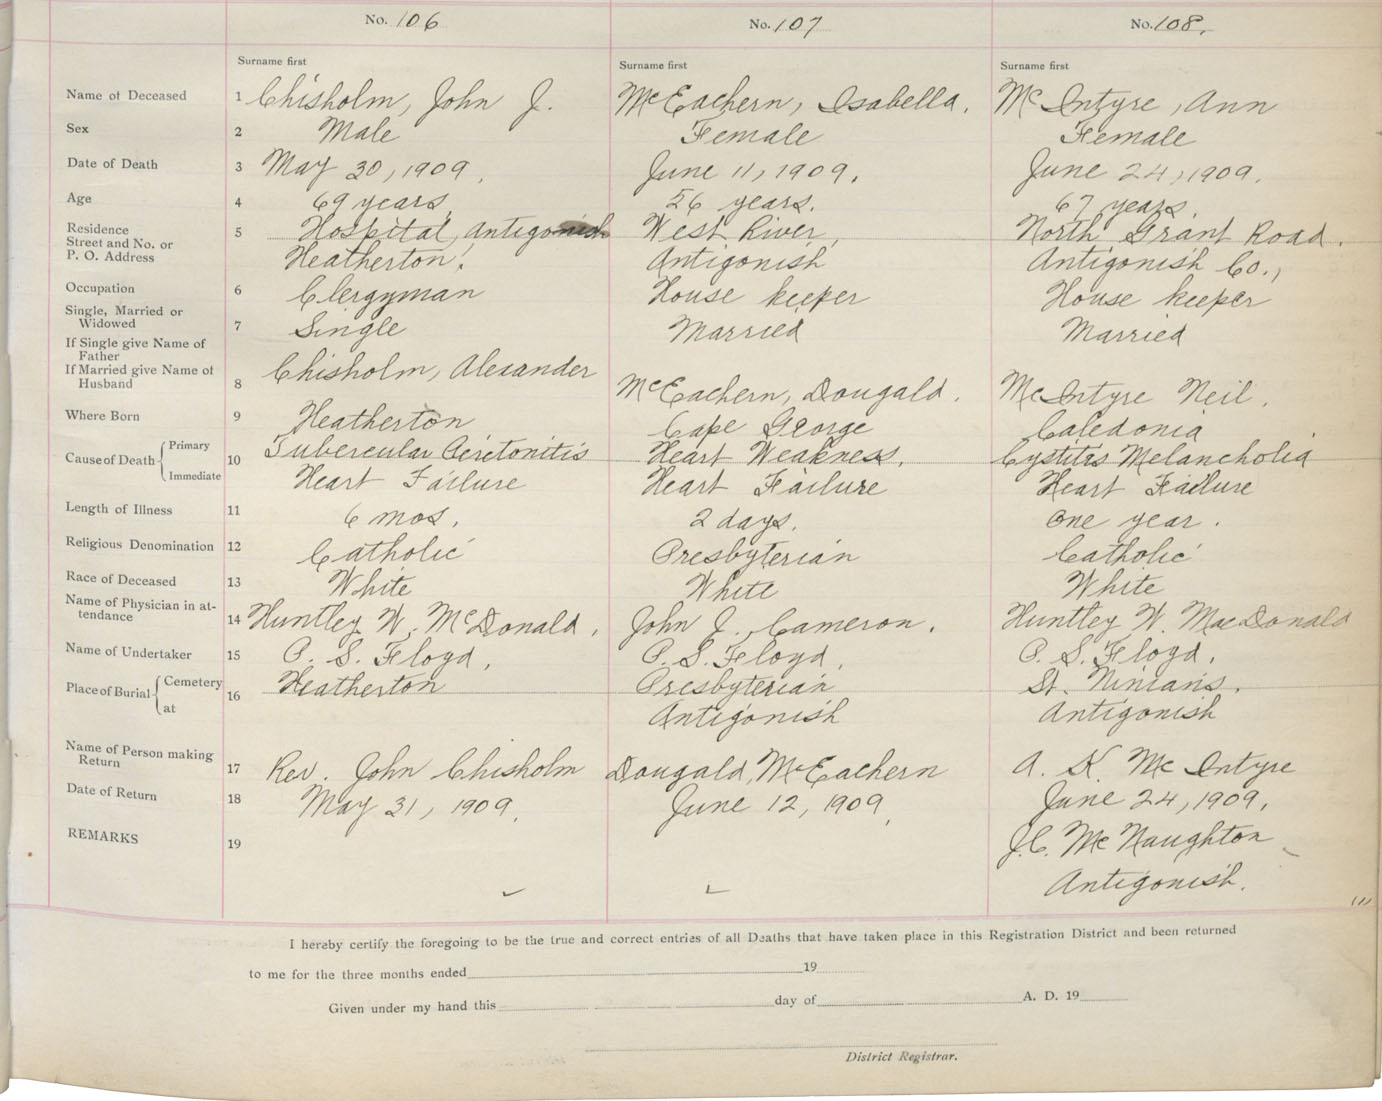 No. 106 No. 107 No. 108.
Surname first Surname first Surname first
Name of Deceased 1 Chisholm, John J. McEachern, Isabella. McIntyre, Ann
Sex 2 Male Female Female
Date of Death 3 May 30, 1909. June 11, 1909. June 24, 1909.
Age 4 69 years. 56 years. 67 years.
Residence 5 Hospital, Antigonish West River, North Grant Road.
Street and No. or
P. O. Address Heatherton. Antigonish Antigonish Co.,
Occupation 6 Clergyman House keeper House keeper
Single, Married or
Widowed 7 Single Married Married
If Single give Name of
Father
If Married give Name of
Husband 8 Chisholm, Alexander McEachern, Dougald. McIntyre Neil.
Where Born 9 Heatherton Cape George Caledonia
Cause of Death Primary 10 Tubercular Peretonitis Heart Weakness. Cystitis Melancholia
Immediate Heart Failure Heart Failure Heart Failure
Length of Illness 11 6 mos. 2 days. one year.
Religious Denomination 12 Catholic Presbyterian Catholic
Race of Deceased 13 White White White
Name of Physician in at-
tendance 14 Huntley W. McDonald. John J. Cameron. Huntley W. MacDonald
Name of Undertaker 15 P. S. Floyd. P. S. Floyd. P. S. Floyd.
Place of Burial Cemetery 16 Heatherton Presbyterian St. Ninians.
at Antigonish Antigonish
Name of Person making
Return 17 Rev. John Chisholm Dougald McEachern A. K. McIntyre
Date of Return 18 May 31, 1909. June 12, 1909. June 24, 1909.
REMARKS 19 J.C. McNaughton
Antigonish.
I hereby certify the foregoing to be the true and correct entries of all Deaths that have taken place in this Registration District and been returned
to me for the three months ended 19
Given under my hand this day of A. D. 19
District Registrar.